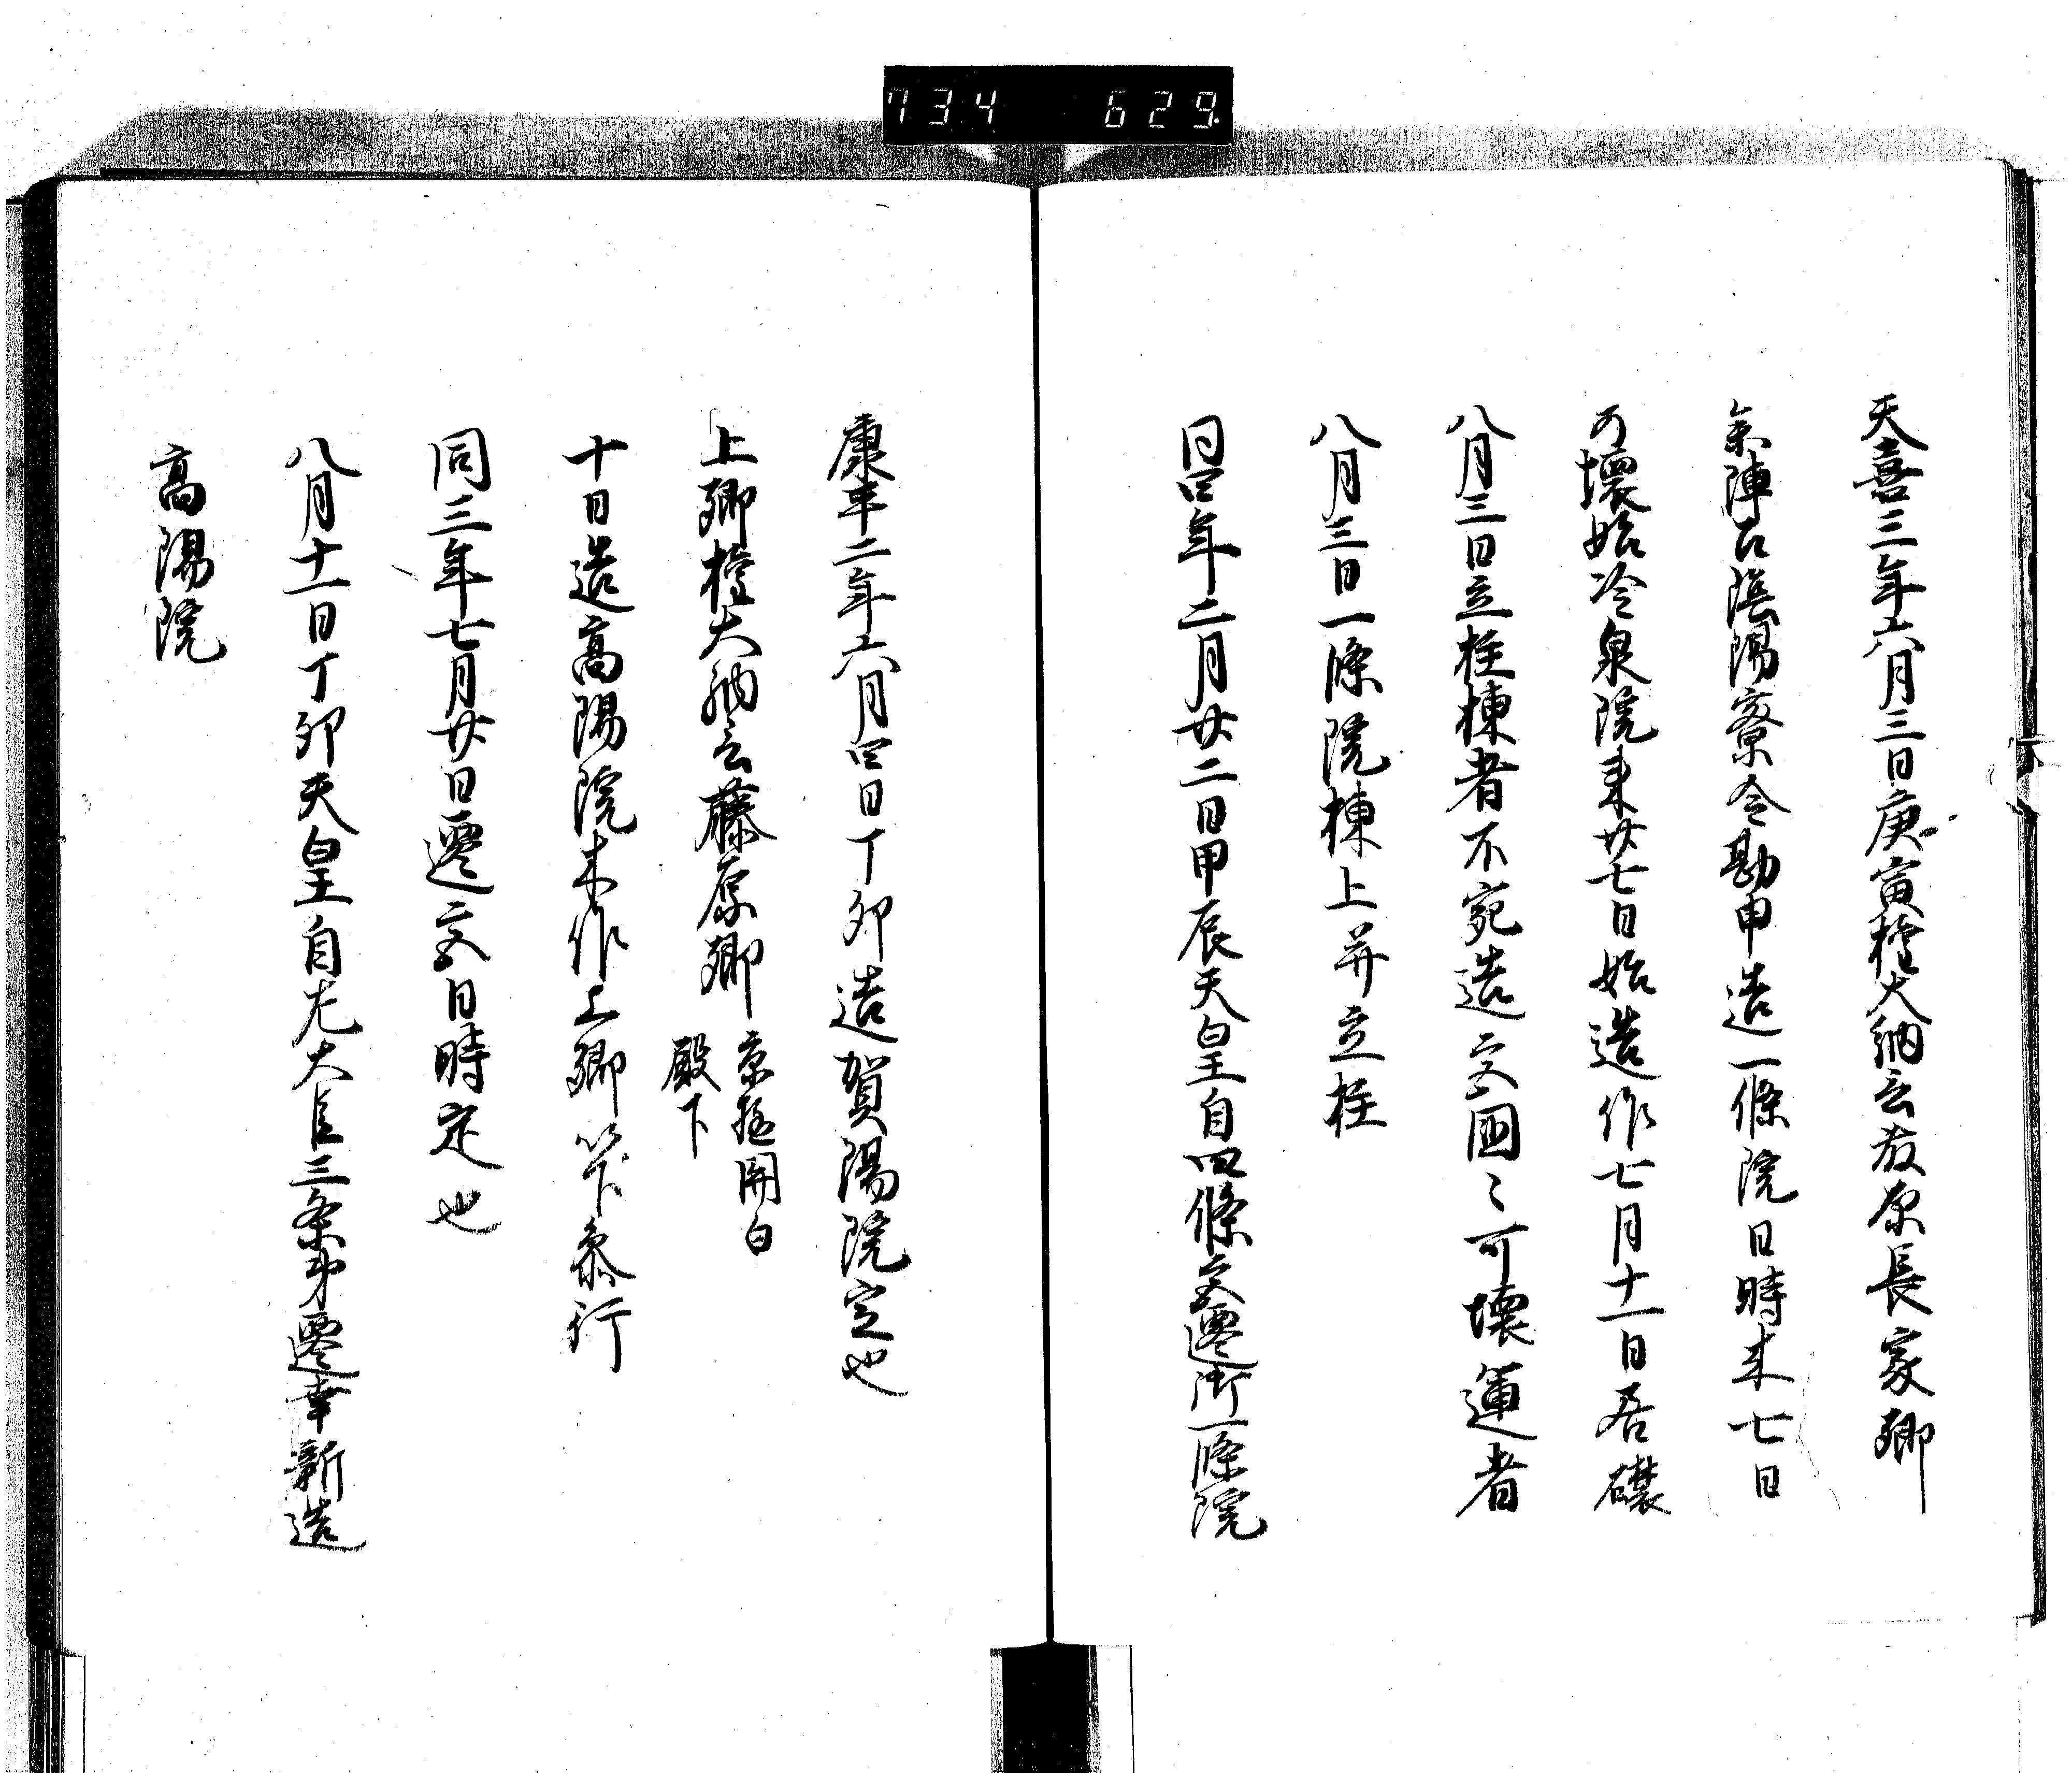 734 629
天喜三年六月三日庚寅権大納言藤原長家卿
参陣召陰陽寮令勘申造一條院日時来七日
可壊始冷泉院来廿七日始造作七月十一日居礎
八月三日立柱棟者不宛造文国々可壊運者
八月三日一條院棟上并立柱
同四年二月廿二日甲辰天皇自四條宮遷御一條院
康平二年六月四日丁卯造賀陽院定也
上卿権大納言藤原卿 京極関白殿下
十日造高陽院未作上卿以下参行
同三年七月廿日遷宮日時定也
八月十一日丁卯天皇自左大臣三条第遷幸新造
高陽院